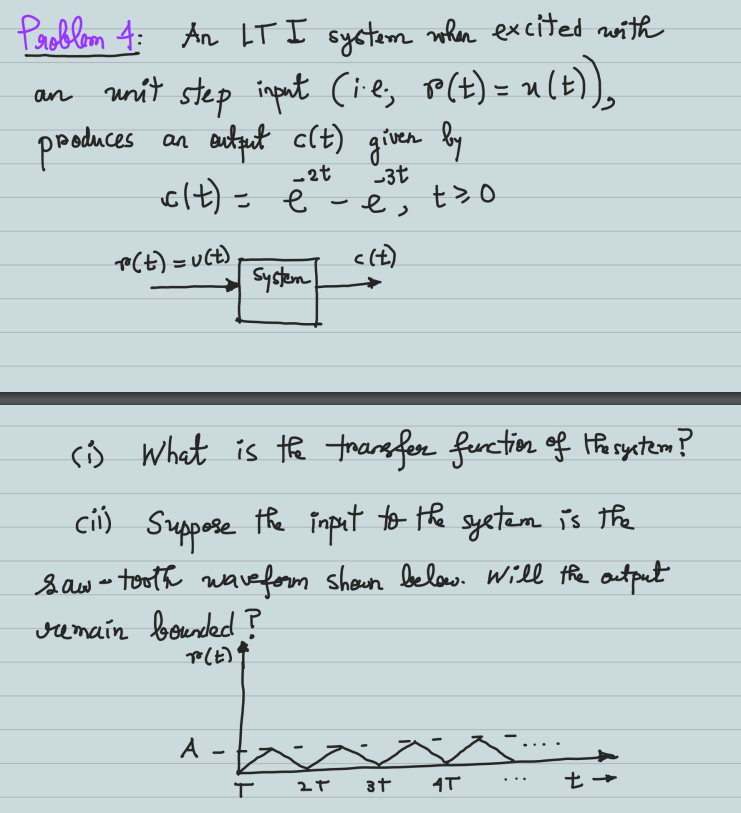 Problem 4: An LTI system when excited with
an unit step input (i.e., r(t) = u(t)),
produces an output c(t) given by
c(t) = e^{-2t} - e^{-3t}, t ≥ 0
r(t) = u(t) system c(t)
(i) What is the transfer function of the system?
(ii) Suppose the input to the system is the
saw-tooth waveform shown below. Will the output
remain bounded?
r(t)
A
T 2T 3T 4T ... t